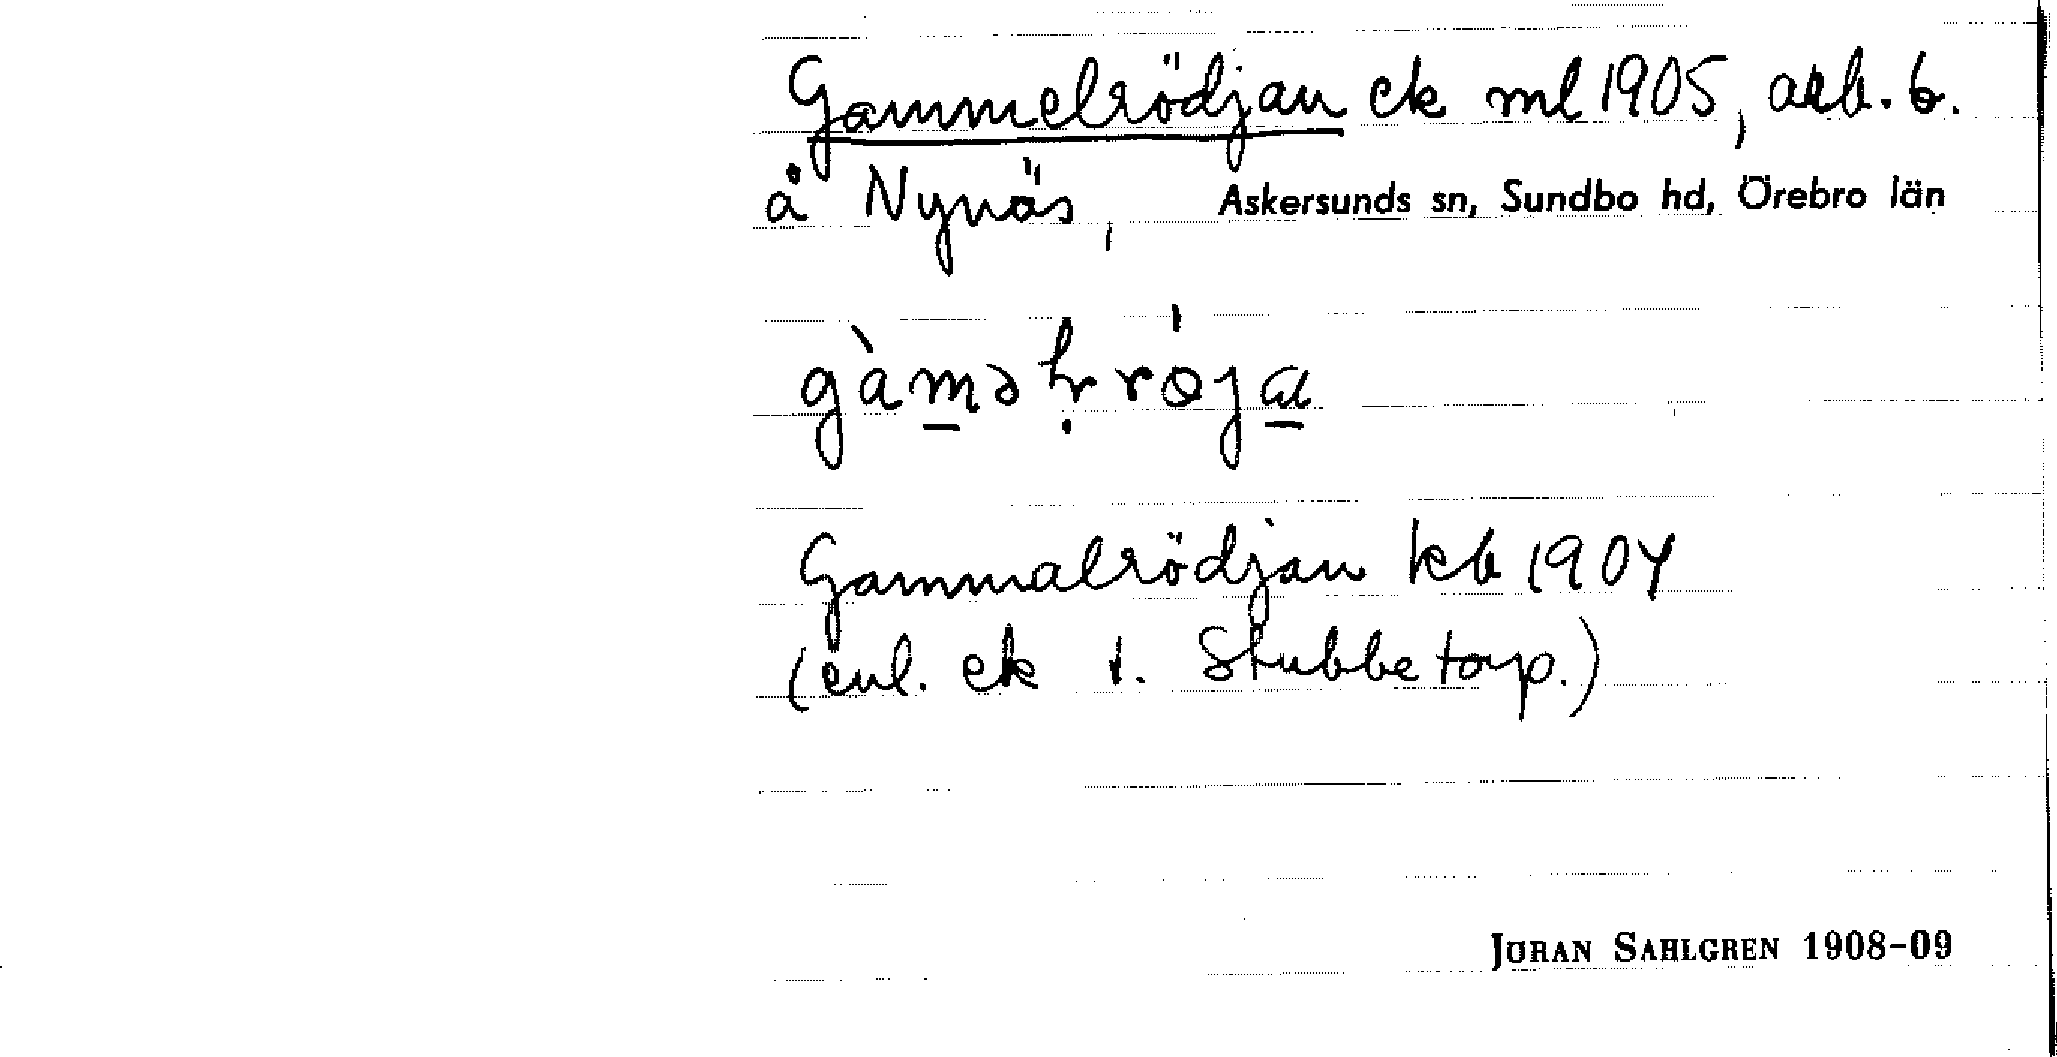 Gammelrödjan ek ml 1905, arb. b.
å Nynäs, Askersunds sn, Sundbo hd, Örebro län
Gammalrödjan kb 1904
(enl. ek t. Stubbetorp.)
JÖRAN SAHLGREN 1908-09